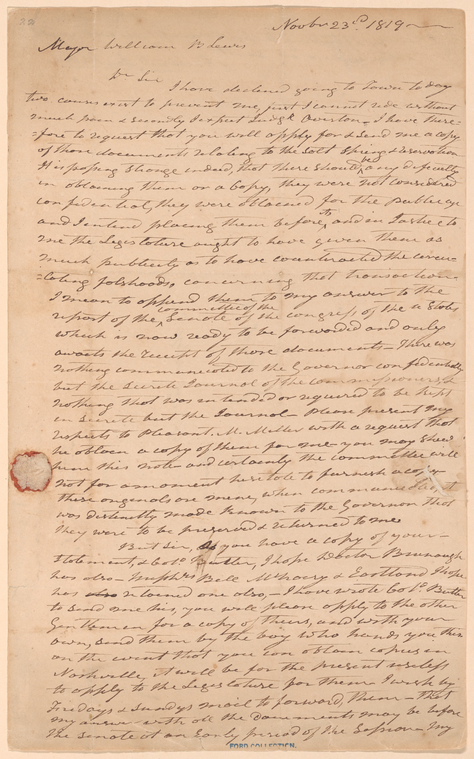 22
Novbr 23rd 1819
Major William B Lewis
Dr Sir
I have declined going to Town to day
two causes exist to prevent me, first I cannot ride without
much pain & secondly I expect Judge Overton - I have there
=fore to request that you will apply for & send me a copy
of those documents relating to the Salt Spring & reservation
It is passing Strange indeed, that there should be any difficulty
in obtaining them or a copy, they were not considered
confidential, they were obtained for the Publick eye
and I intend placing them before it, and in Justice to
me the Legislature ought to have given them as
much publicity as to have counteracted the circu
=lating falshoods, concerning that transaction
I mean to append them to my answer to the
report of the committee of the Senate of the Congress of the U States
which is now ready to be forwarded and only
awaits the receipt of those documents - There was
nothing communicated to the Governor confidentially
but the Secrete Journal of the commissioners &
nothing that was intended or required to be kept
in Secrete but the Journal - Please present my
respects to Pleasant M. Miller with a request that
he obtain a copy of them for me - you may shew
him this note - and certainly the committee will
not for a moment hesitate to furnish a copy
these originals are mine, when communicated it
was distinctly made known to the Governor that
they were to be preserved & returned to me
But Sir, you have a copy of your
statement, & Colo. Butler, I hope Doctor Bronaugh
has also - Bell McNairy & Eastland I hope
has retained one also, - I have wrote Colo. Butler
to send me his, you will please apply to the other
Gentlemen for a copy of theirs, and with your
own, send them by the boy who hands you this
in the event that you can obtain copies in
Nashville, it will be for the present useless
to apply to the Legislature for them I wish by
Fridays & Sundays mail to forward, them - that
my answer with all the documents may be before
the Senate at an Early period of the Session. My
FORD COLLECTION.